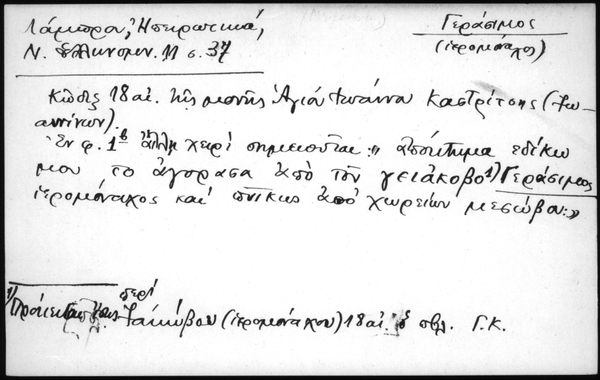 Λάμπρου, Ἠπειρωτικά,
Ν. Ἑλληνομν. 11 σ. 37
Γεράσιμος
(ἱερομόναχος)
Κῶδιξ 18 αἰ. τῆς μονῆς Ἁγίου Ἰωάννου Καστρίτσης (Ἰω-
αννίνων)
Ἐν φ. 1β ἄλλῃ χειρὶ σημειοῦται: "ἀπόκτημα ἐδικω
μου το ἀγορασα ἀπὸ τὸν γεἰάκοβο 1) Γεράσιμος
ἱερομόναχος καὶ ἀπὸ χωρείων μεσώβου:»
1) Πρόκειται περὶ Ἰακώβου (ἱερομονάχου) 18 αἰ. Γ.Κ.